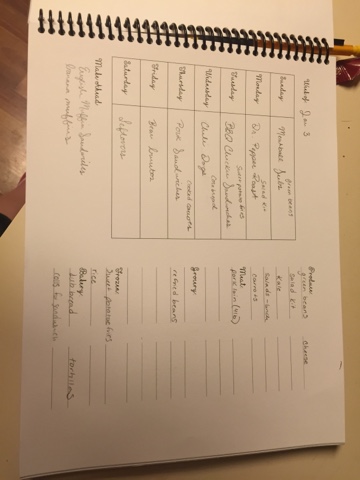 Week of: Jan 3
green beans
Sunday Meatball Subs
salad kit
Monday Dr. Pepper Roast
sweet potato fries
Tuesday BBQ Chicken Sandwiches
cornbread
Wednesday Chili Dogs
roasted carrots
Thursday Pork Sandwiches
Friday Bean Burritos
Saturday Leftovers
Make ahead
English Muffin Sandwiches
banana muffins
Produce
green beans cheese
salad kit
kale
carrots
Meat
pork loin
Grocery
refried beans
Frozen
sweet potato fries
rice
Bakery
sub bread tortillas